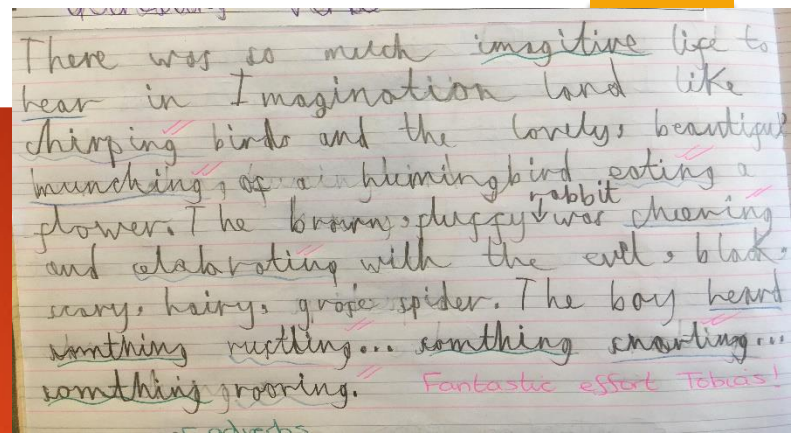 There was so much imagitive life to
hear in Imagination land like
chirping birds and the lovely, beautiful
munching, of a humingbird eating a
rabbit
flower. The brown, fluffy was cheering
and elabrating with the evil, black,
scary, hairy, grose spider. The boy heart
somthing rustling... somthing snarling...
somthing grooring. Fantastic effort Tobias!
adverbs